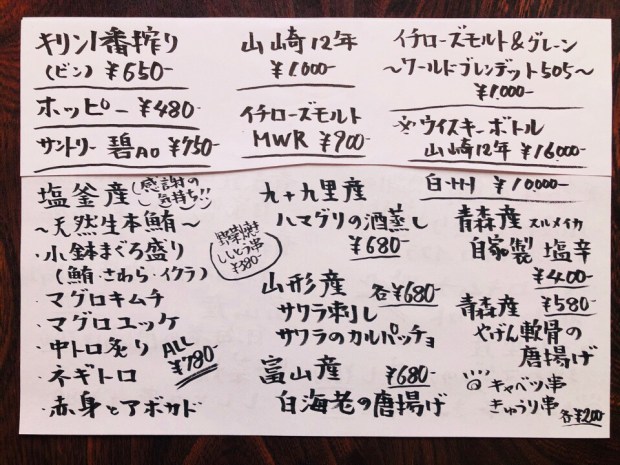 キリン1番搾り
(ビン) ¥650-
ホッピー ¥480-
サントリー 碧Ao ¥750
山崎12年
¥1.000-
イチローズモルト
MWR ¥900-
イチローズモルト&グレーン
〜ワールドブレンデット505〜
¥1.000-
ウイスキーボトル
山崎12年 ¥16.000-
白州 ¥10.000-
塩釜産 感謝の
気持ち!!
〜天然生本鮪〜
・小鉢まぐろ盛り
(鮪・さわら・イクラ)
・マグロキムチ
・マグロユッケ
・中トロ炙り ALL
・ネギトロ ¥780-
・赤身とアボカド
野菜焼き
ししとう串
¥380-
九十九里産
ハマグリの酒蒸し
¥680-
山形産 各¥680-
サワラ刺し
サワラのカルパッチョ
富山産 ¥680-
白海老の唐揚げ
青森産 スルメイカ
自家製 塩辛
¥400-
青森産 ¥580-
やげん軟骨の
唐揚げ
キャベツ串
きゅうり串 各¥200-